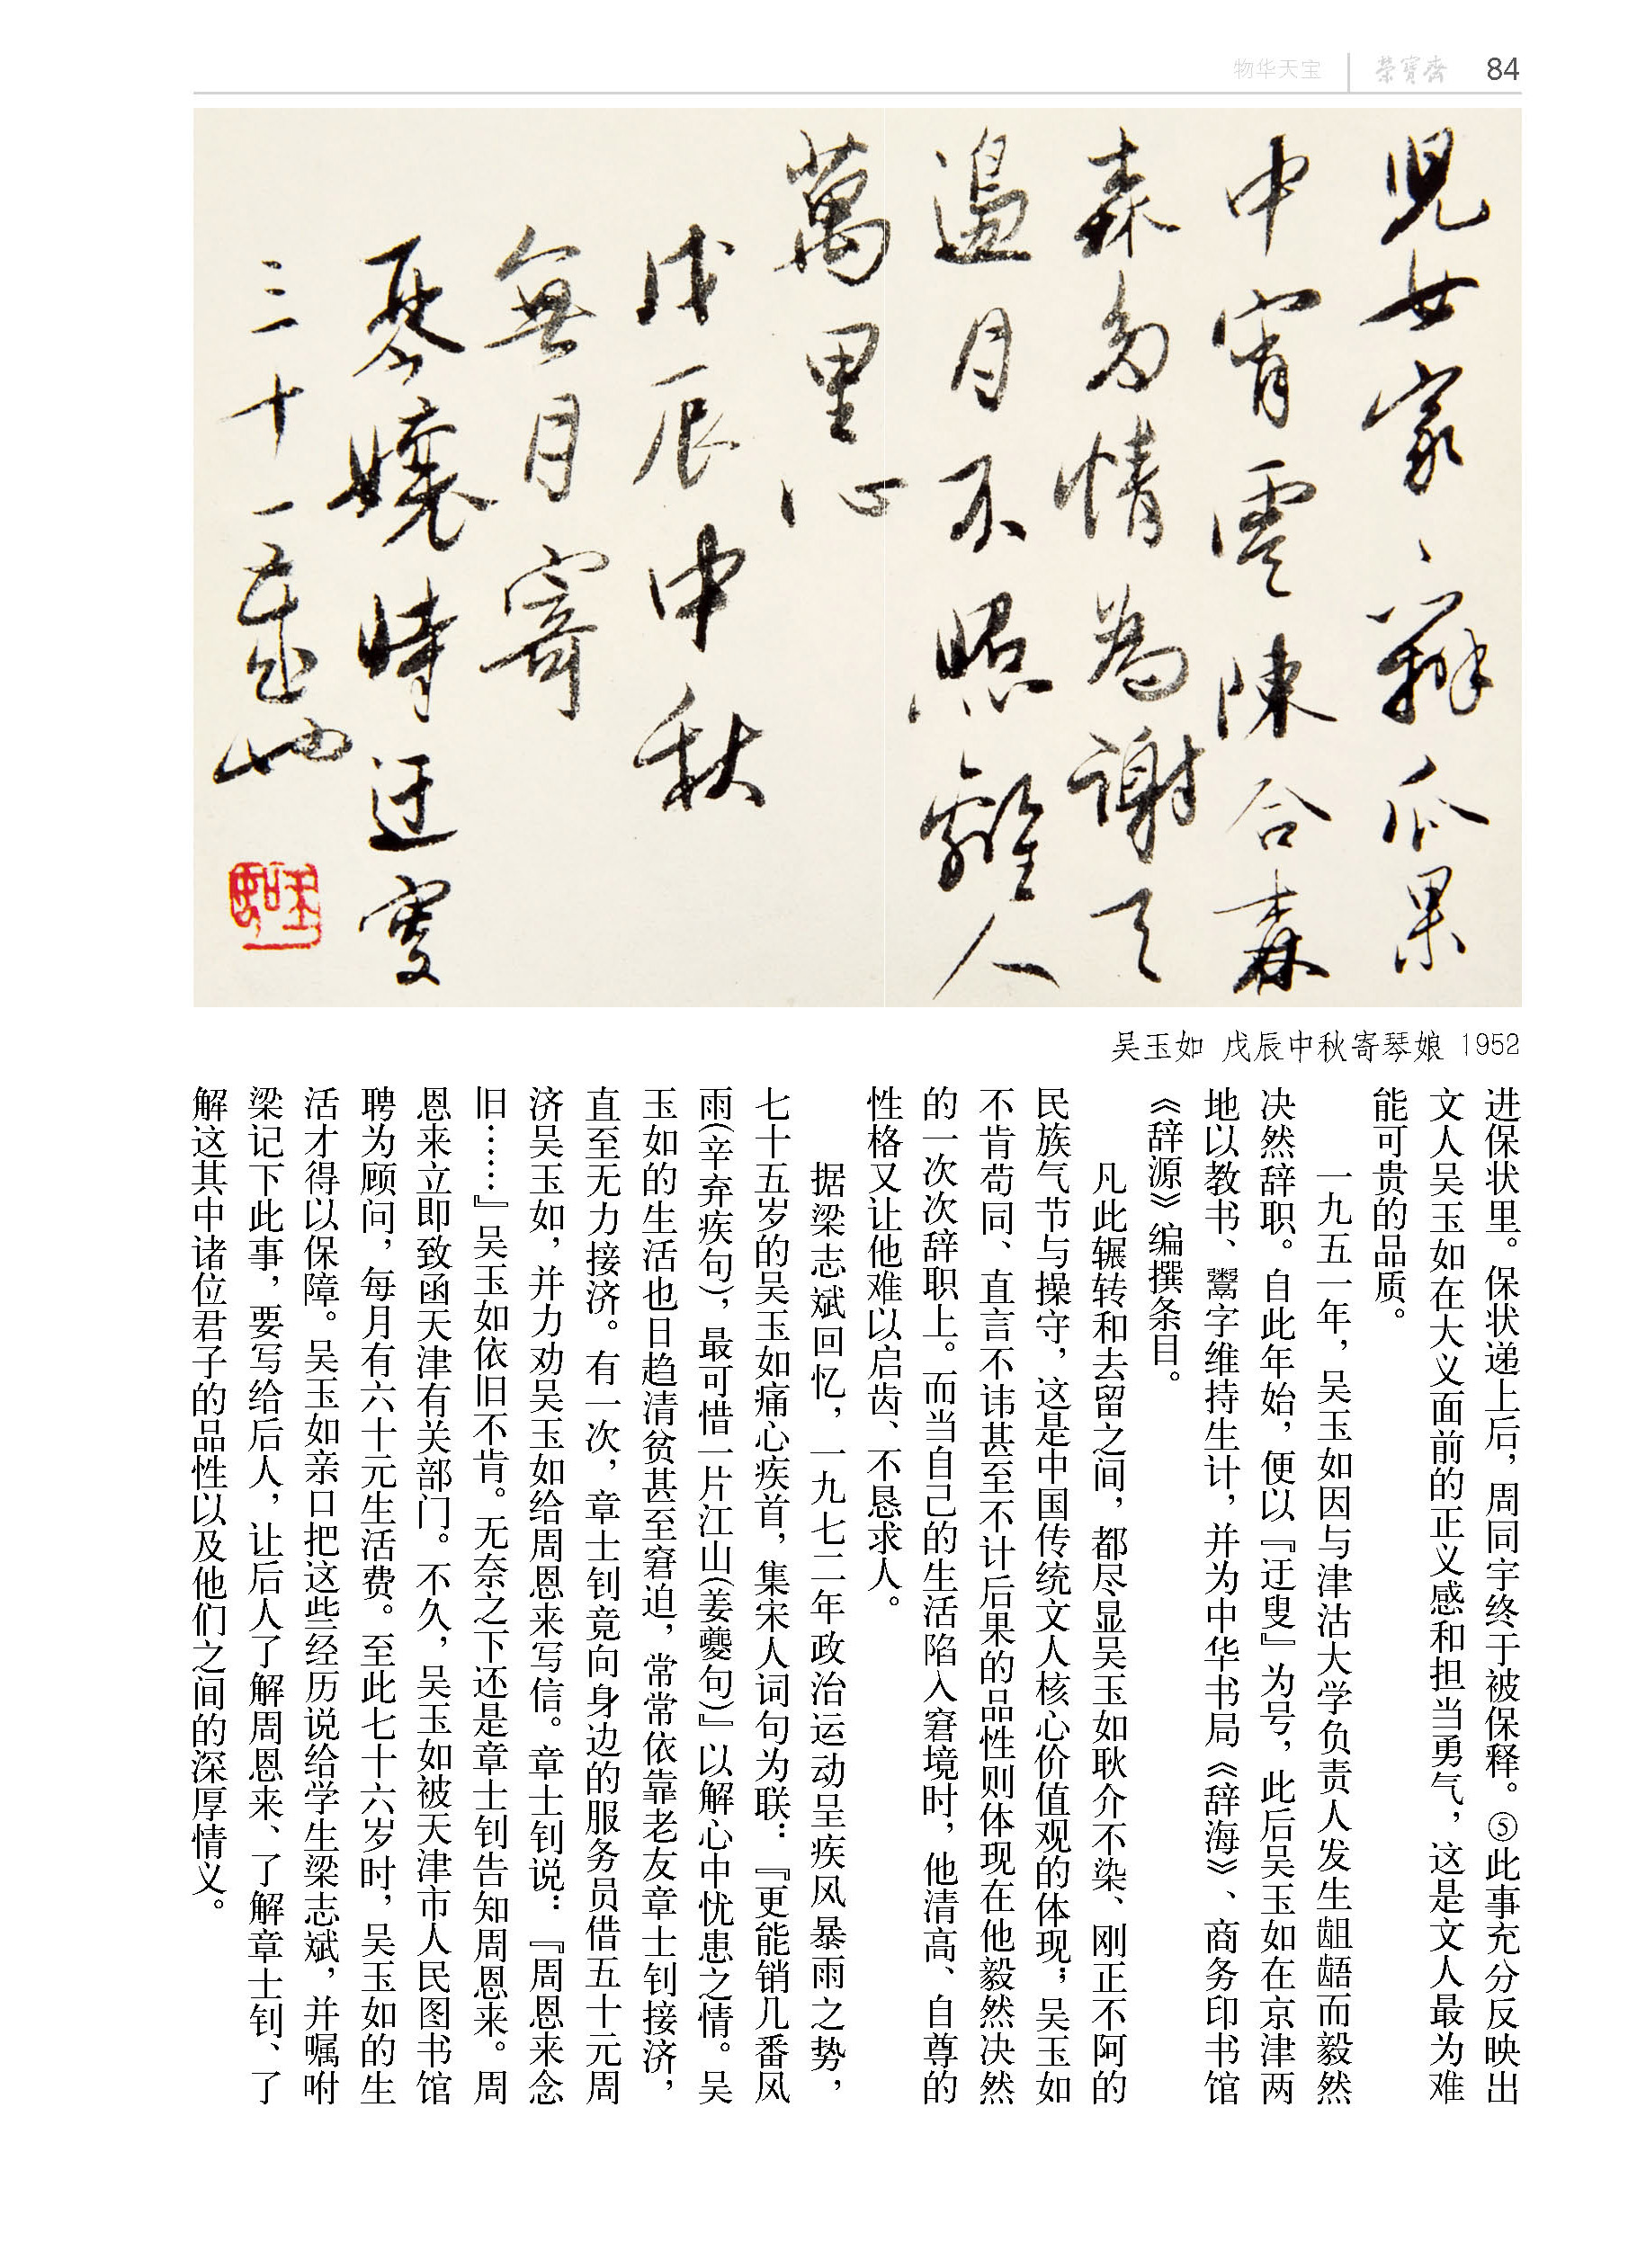 物华天宝 荣宝斋 84
兒女家〻辦瓜果
中宵雲陳合森
森多情為謝天
邊月不照離人
萬里心
戊辰中秋
無月寄
琴孃時迂叟
三十一歲也
吴玉如 戊辰中秋寄琴娘 1952
进保状里。保状递上后，周同宇终于被保释。⑤此事充分反映出
文人吴玉如在大义面前的正义感和担当勇气，这是文人最为难
能可贵的品质。
一九五一年，吴玉如因与津沽大学负责人发生龃龉而毅然
决然辞职。自此年始，便以『迂叟』为号，此后吴玉如在京津两
地以教书、鬻字维持生计，并为中华书局《辞海》、商务印书馆
《辞源》编撰条目。
凡此辗转和去留之间，都尽显吴玉如耿介不染、刚正不阿的
民族气节与操守，这是中国传统文人核心价值观的体现；吴玉如
不肯苟同、直言不讳甚至不计后果的品性则体现在他毅然决然
的一次次辞职上。而当自己的生活陷入窘境时，他清高、自尊的
性格又让他难以启齿、不恳求人。
据梁志斌回忆，一九七二年政治运动呈疾风暴雨之势，
七十五岁的吴玉如痛心疾首，集宋人词句为联：『更能销几番风
雨(辛弃疾句)，最可惜一片江山(姜夔句)』以解心中忧患之情。吴
玉如的生活也日趋清贫甚至窘迫，常常依靠老友章士钊接济，
直至无力接济。有一次，章士钊竟向身边的服务员借五十元周
济吴玉如，并力劝吴玉如给周恩来写信。章士钊说：『周恩来念
旧……』吴玉如依旧不肯。无奈之下还是章士钊告知周恩来。周
恩来立即致函天津有关部门。不久，吴玉如被天津市人民图书馆
聘为顾问，每月有六十元生活费。至此七十六岁时，吴玉如的生
活才得以保障。吴玉如亲口把这些经历说给学生梁志斌，并嘱咐
梁记下此事，要写给后人，让后人了解周恩来、了解章士钊、了
解这其中诸位君子的品性以及他们之间的深厚情义。